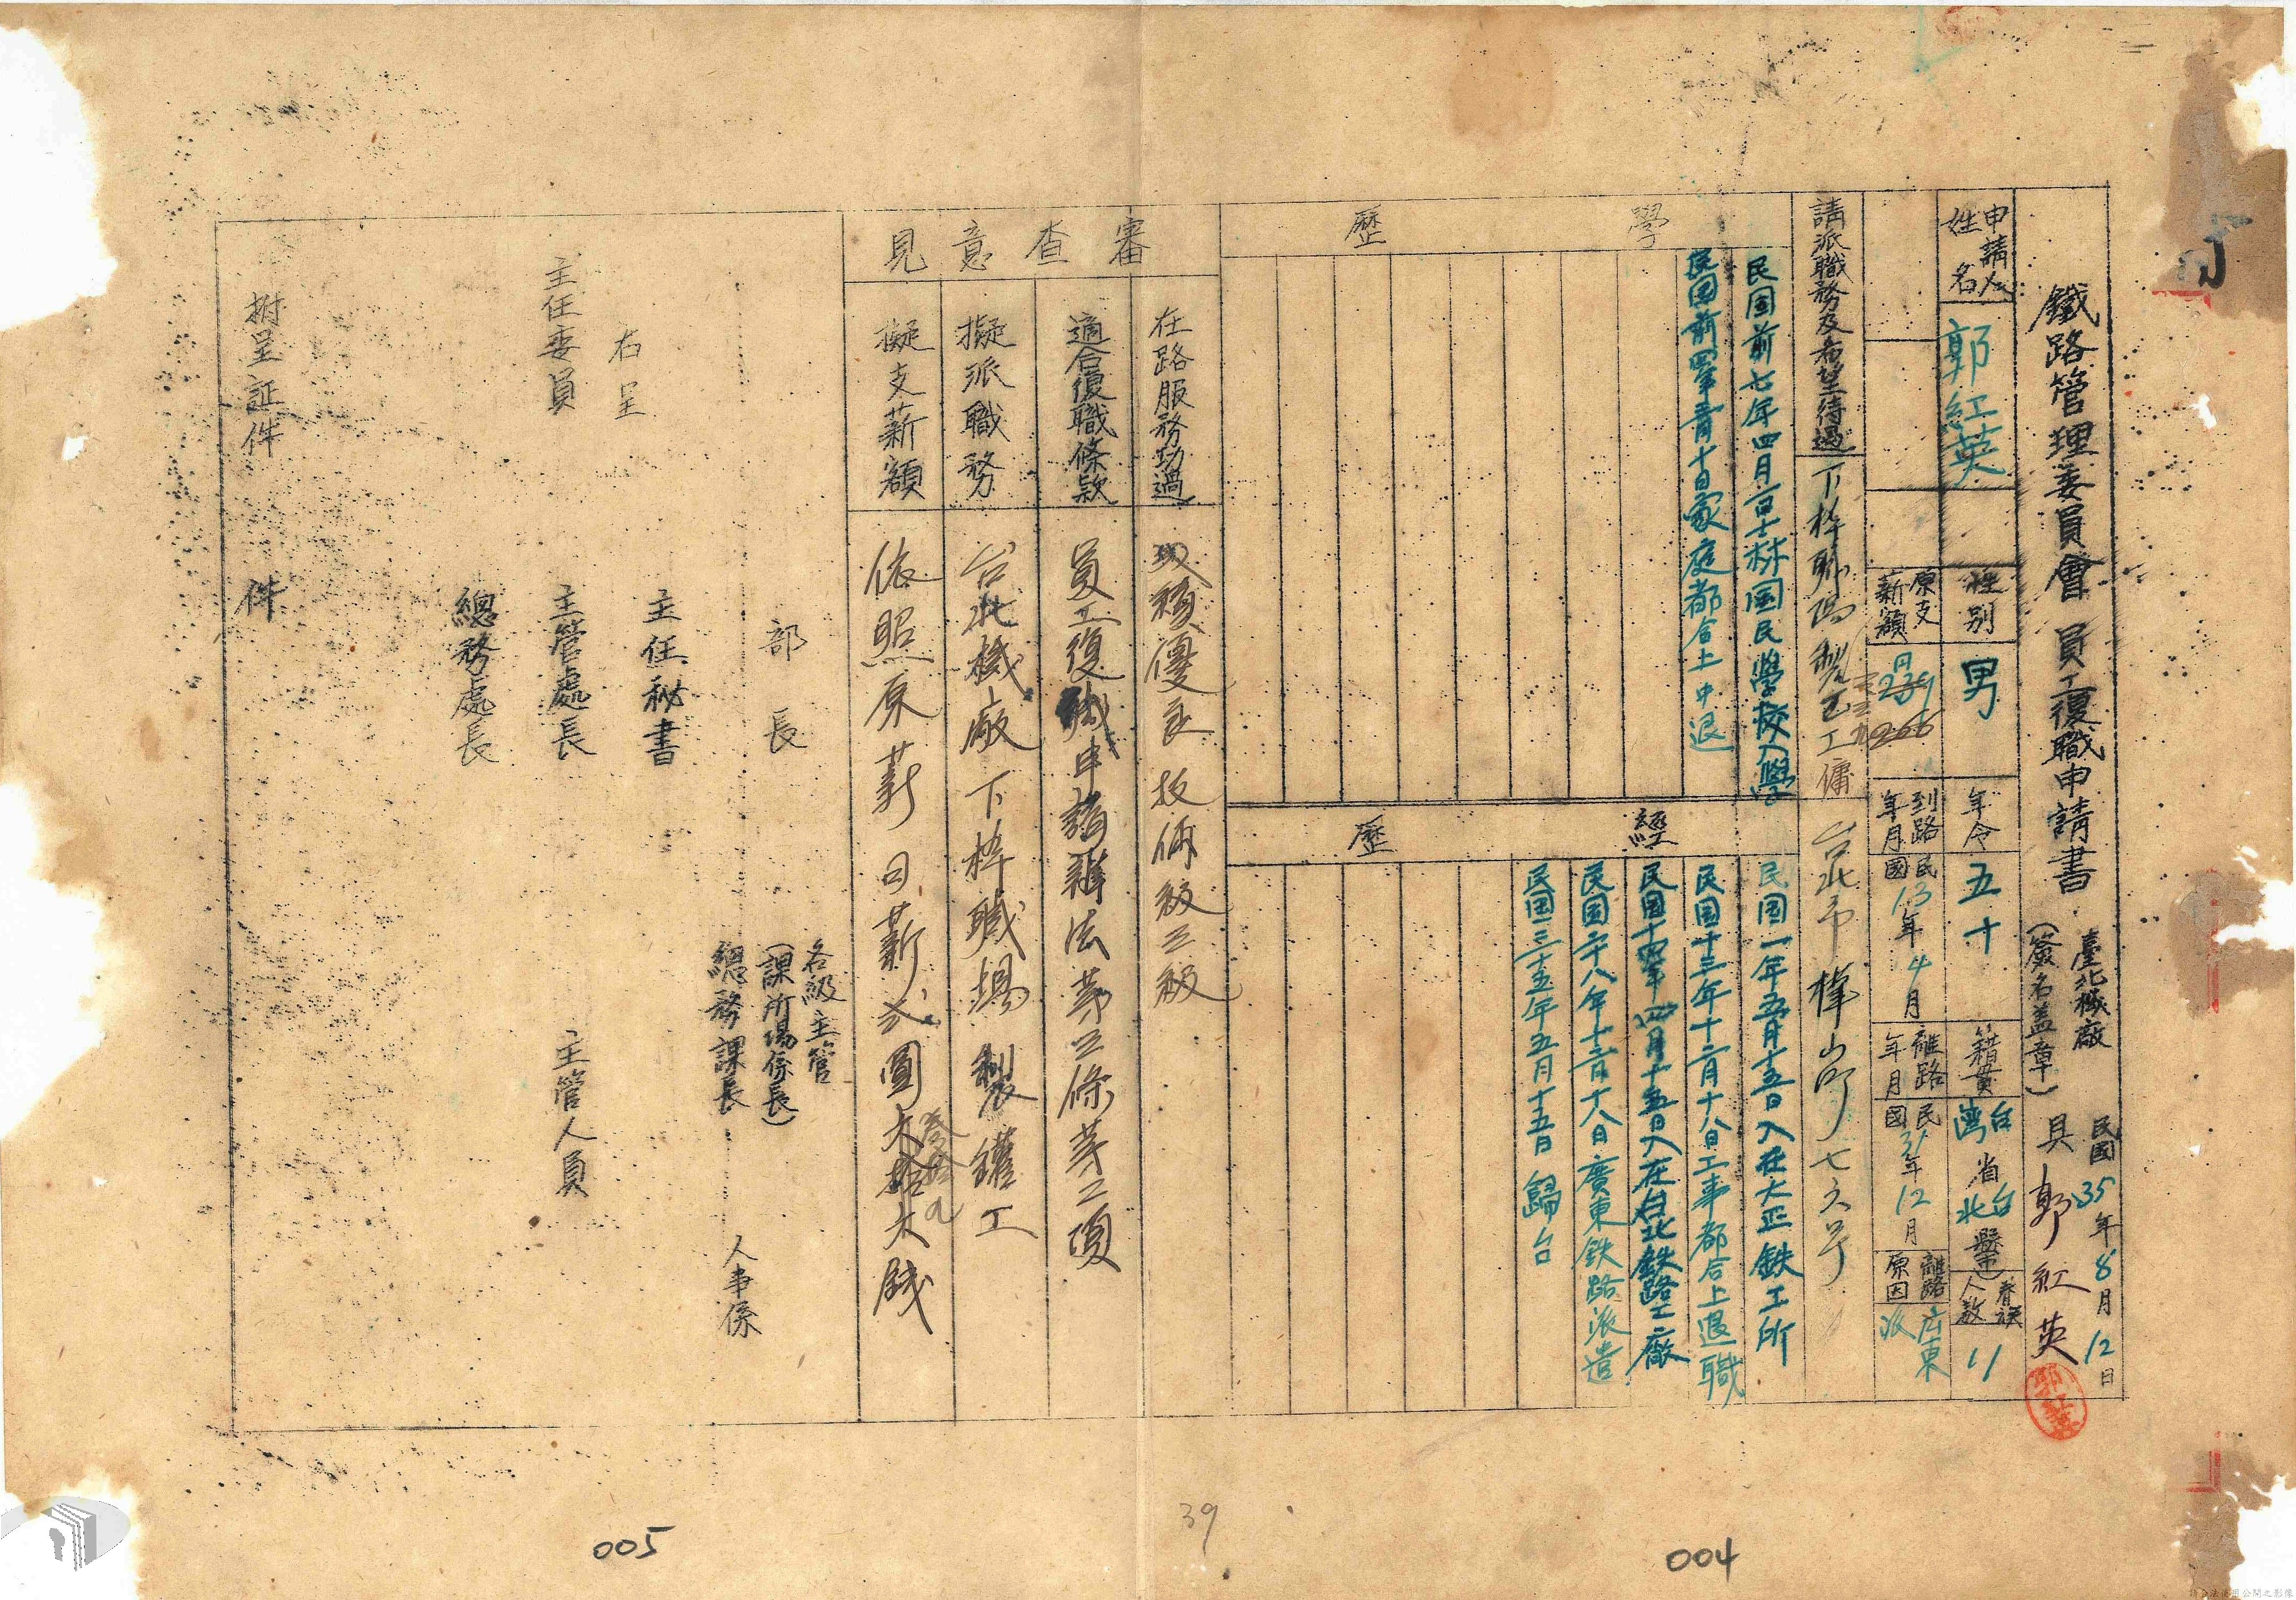 鐵路管理委員會員工復職申請書
臺北機廠
(簽名盖章)
民國35年8月12日
具 郭紅英
申請人姓名
郭紅英
性別
男
年令
五十
籍貫
台灣省台北縣
眷族人数
11
原支薪額
円
到路年月
民國13年4月
離路年月
民國31年12月
離路原因
広東派
請派職務及希望待遇
台北市樺山町七六号
學歷
民国前七年四月一日士林国民學校入學
家庭都合上中退
經歷
民国一年五月十五日入在大正鉄工所
民国十三年十二月十八日工事都合上退職
入在台北鉄路工廠
廣東鉄路派遣
民国三十五年五月十五日歸台
審查意見
在路服務功過
適合復職條款
員工復職申請辦法第三條第二項
擬派職務
台北機廠下枠職場製罐工
擬支薪額
依照原薪日薪
部長
各級主管
(課所場係長)
總務課長
人事係
右呈
主任委員
主任秘書
主管處長
主管人員
總務處長
附呈証件
件
39
005
004